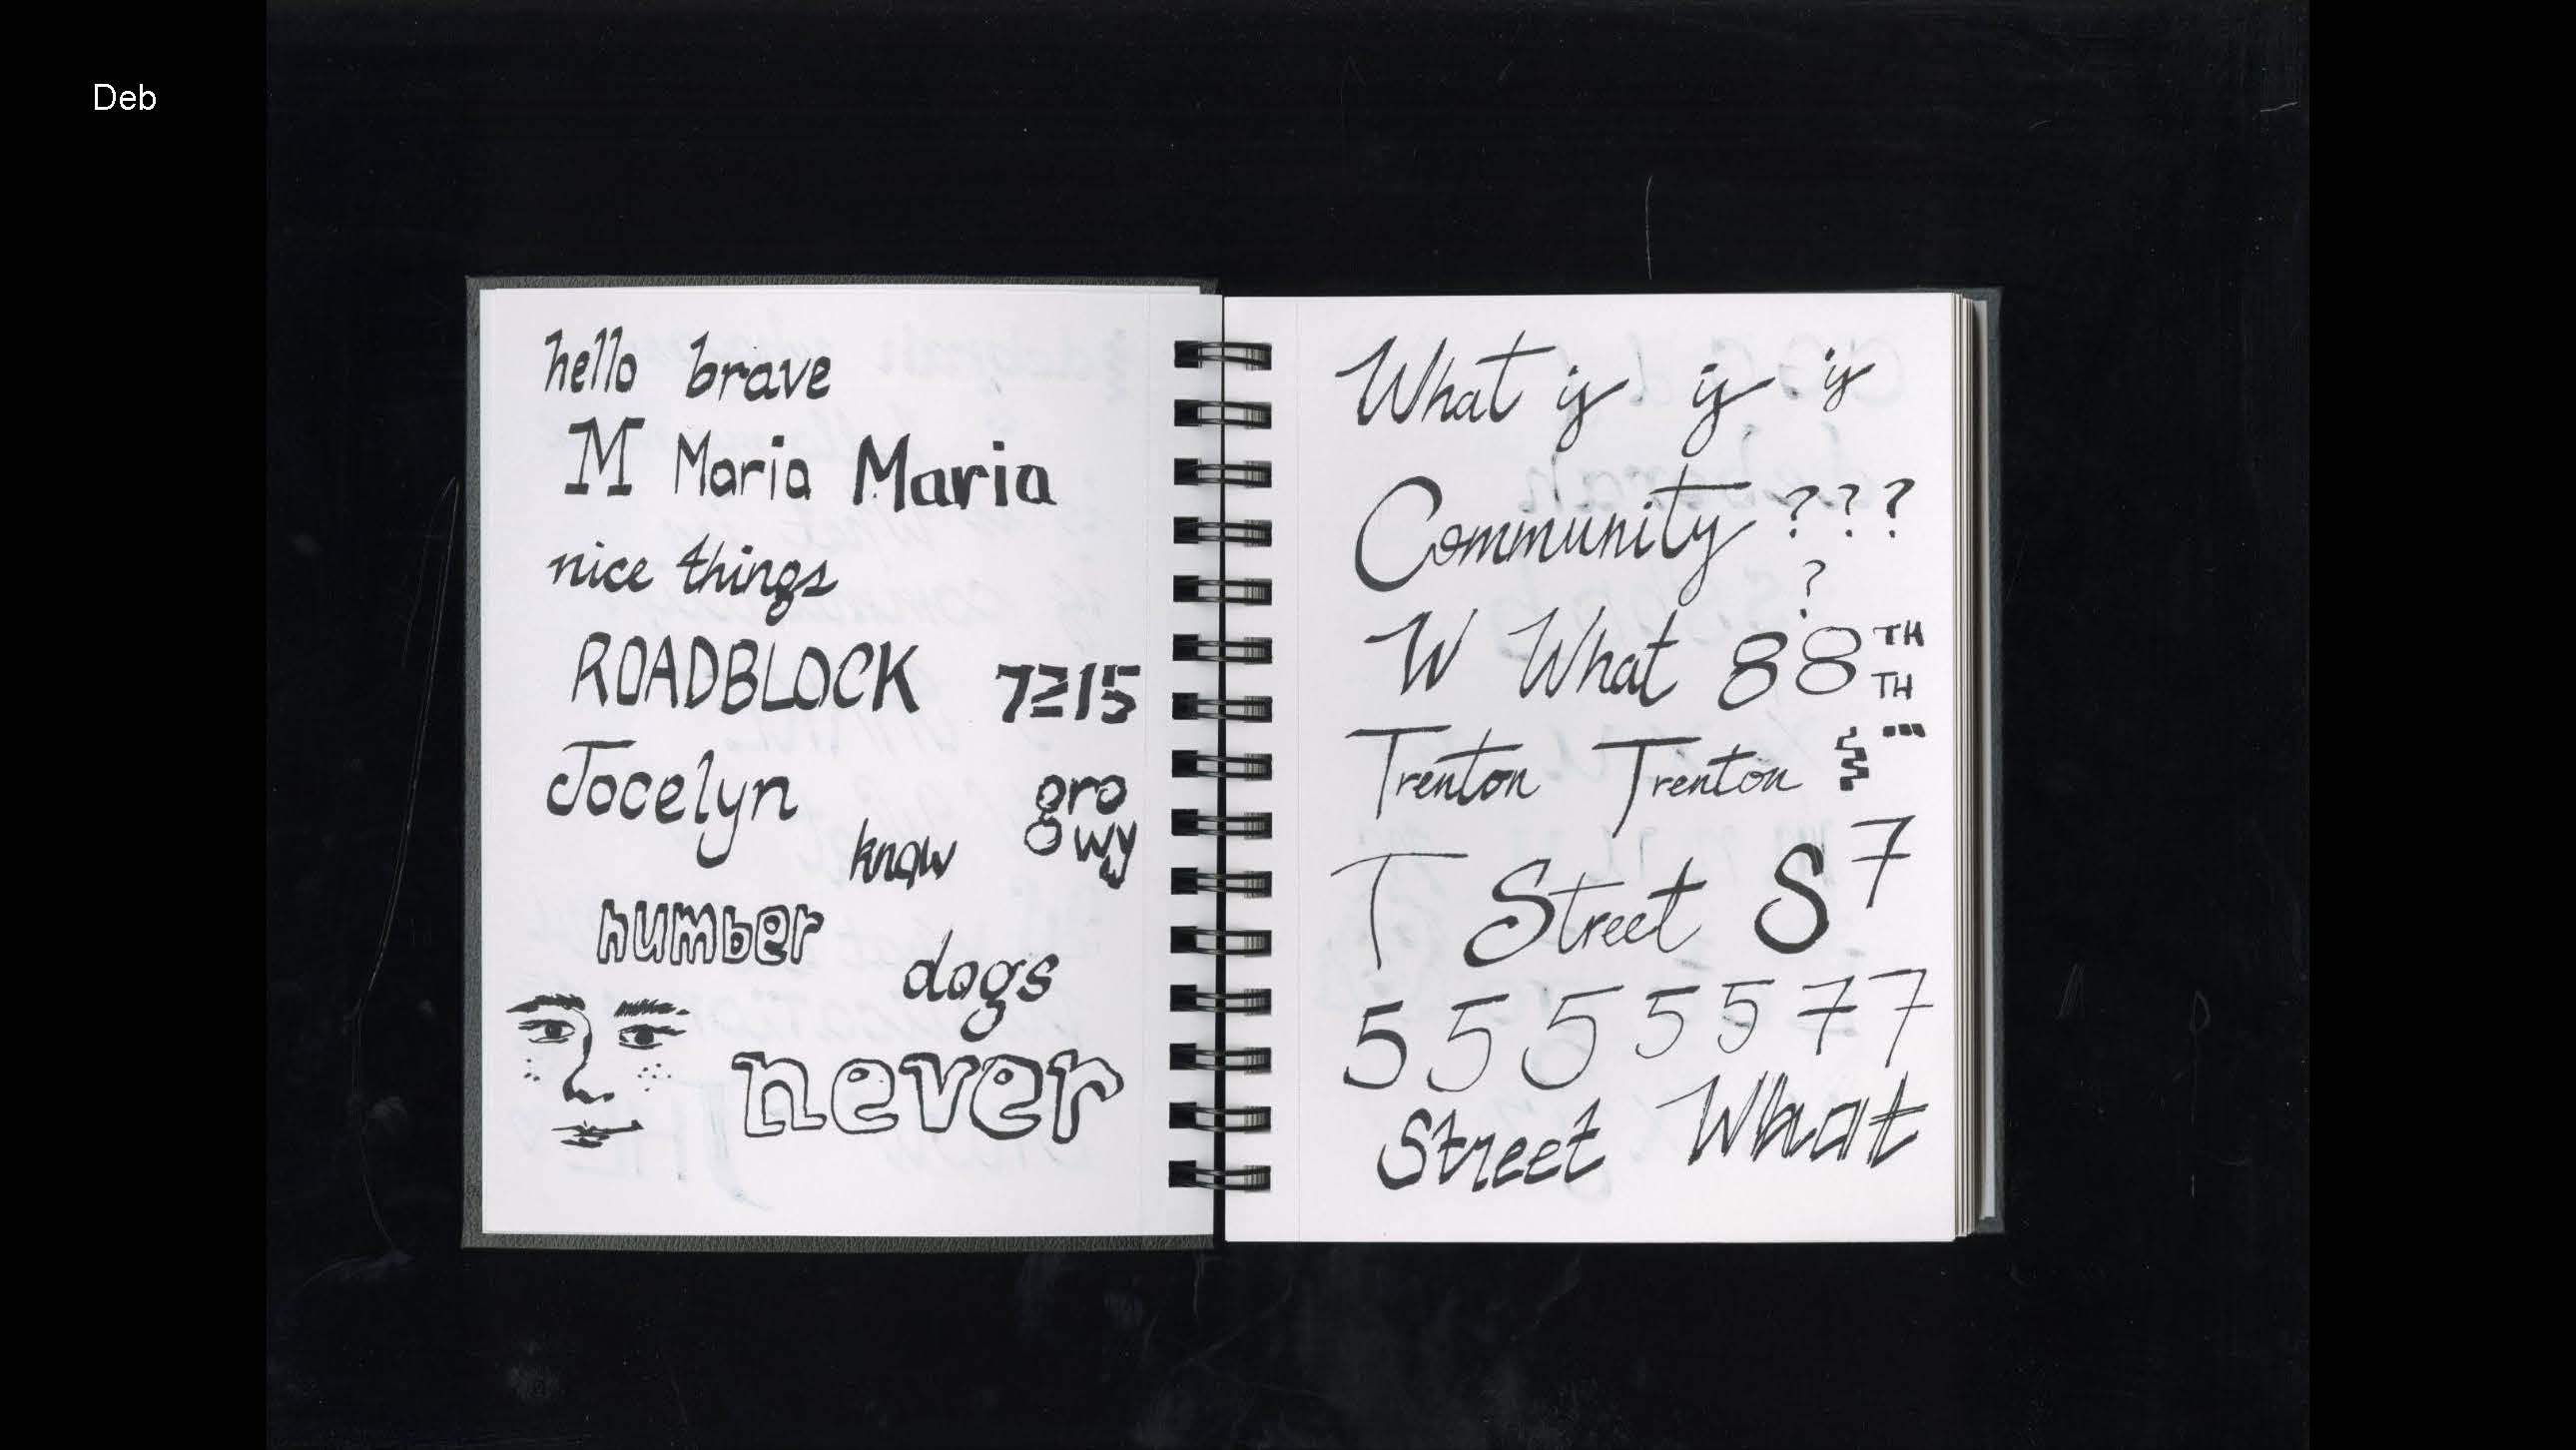 Deb
hello brave
M Maria Maria
nice things
ROADBLOCK 7≥15
Jocelyn
gro
know
wy
number
dogs
never
What is is is
Community ???
?
W What 88 TH
TH
Trenton Trenton
7
T Street S
5 5 5 5 5 7 7
Street What